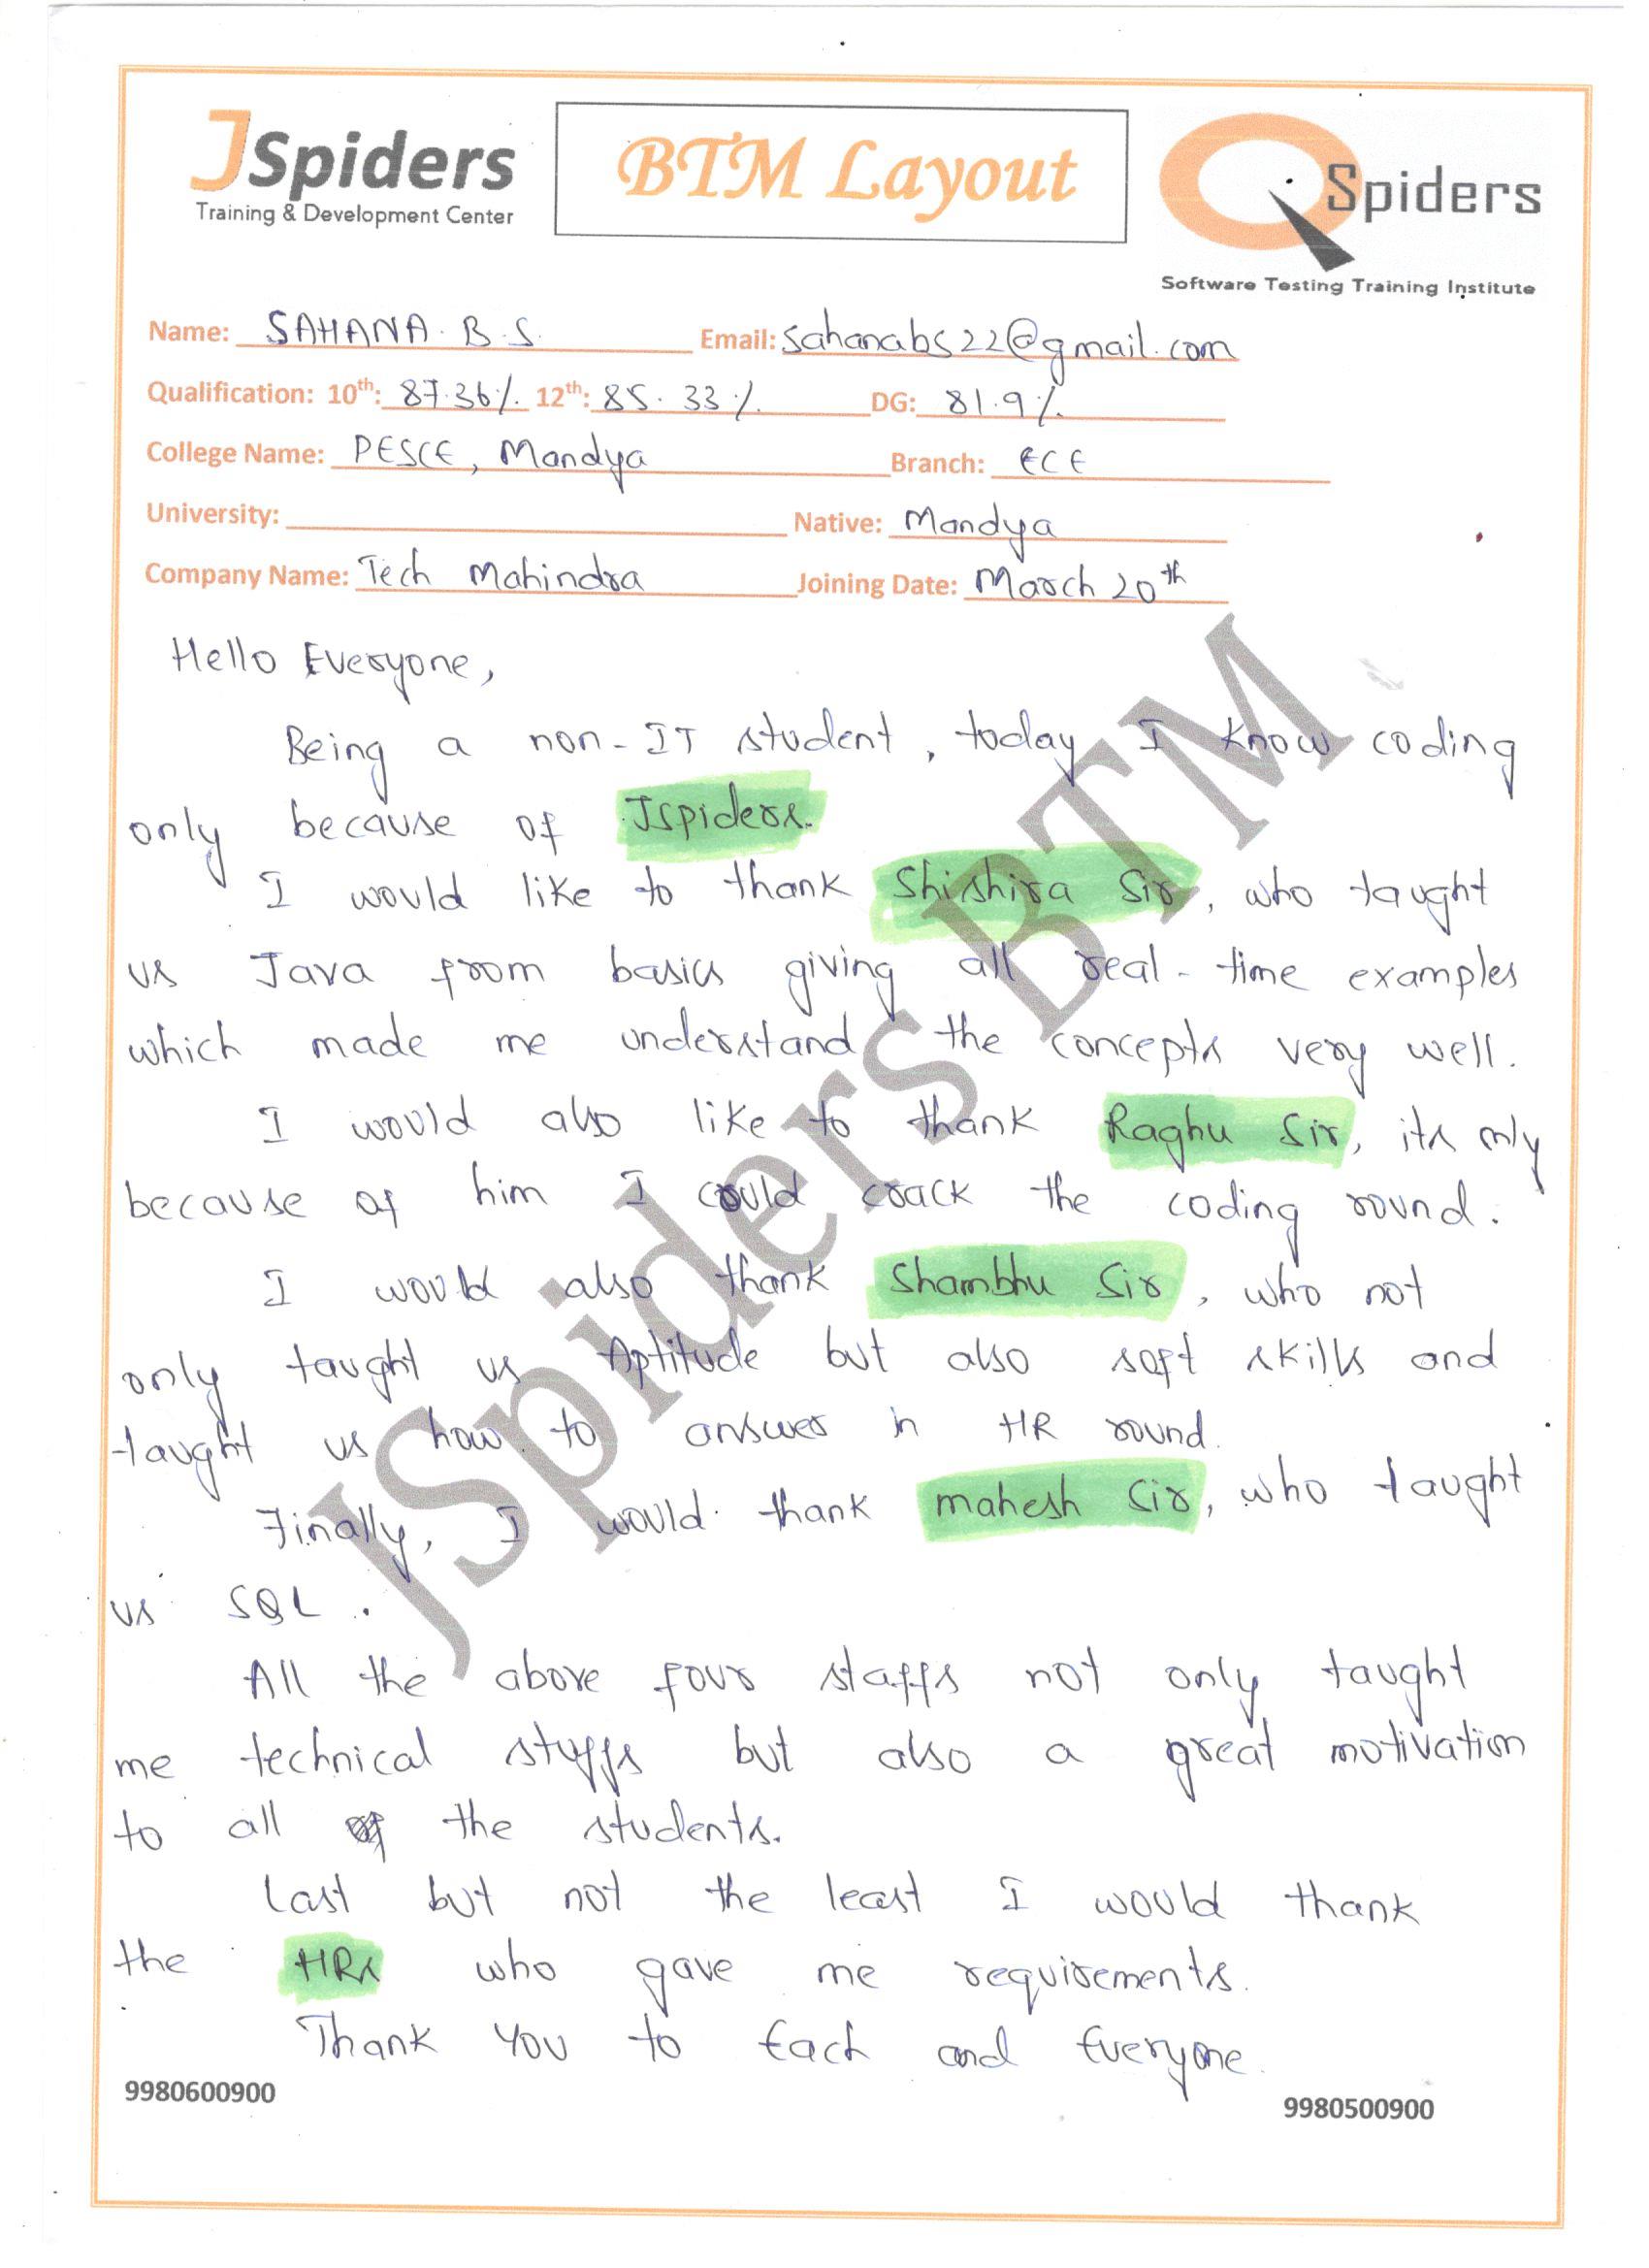 JSpiders
Training & Development Center
BTM Layout
QSpiders
Software Testing Training Institute
Name: SAHANA. B.S. Email: sahanabs22@gmail.com
Qualification: 10th: 87.36% 12th: 85.33% DG: 81.9%
College Name: PESCE, Mandya Branch: ECE
University: Native: Mandya
Company Name: Tech Mahindra Joining Date: March 20th
Hello Everyone,
Being a non-IT student, today I know coding
only because of Jspiders.
I would like to thank Shishira Sir, who taught
us Java from basics giving all real-time examples
which made me understand the concepts very well.
I would also like to thank Raghu Sir, its only
because of him I could crack the coding round.
I would also thank Shambhu Sir, who not
only taught us Aptitude but also soft skills and
taught us how to answer in HR round.
Finally, I would thank mahesh Sir, who taught
us SQL.
All the above four staffs not only taught
me technical stuffs but also a great motivation
to all the students.
Last but not the least I would thank
the HRs who gave me requirements.
Thank You to Each and Everyone.
9980600900 9980500900
JSpiders BTM